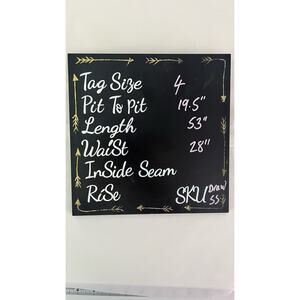 Tag Size 4
Pit To Pit 19.5"
Length 53"
WaiSt 28"
InSide Seam
RiSe SKU
55